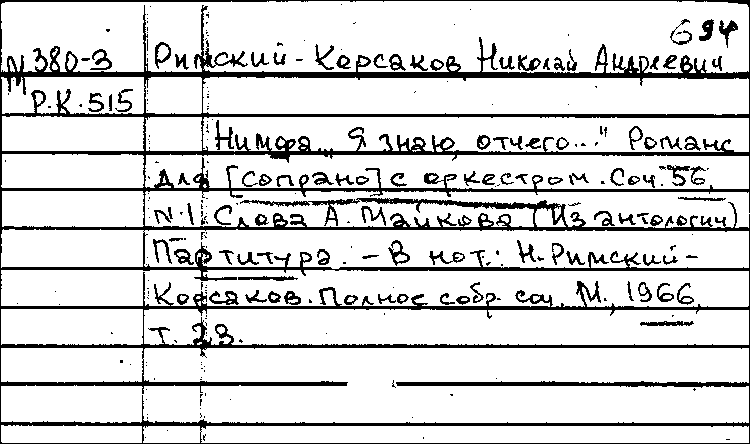 694
М 380-3 Римский-Корсаков, Николай Андреевич
Р.К.515
Нимфа. „Я знаю, отчего..." Романс
для [сопрано] с оркестром. Соч. 56,
N.1. Слова А. Майкова (Из антологии)
Партитура. - В нот.: Н. Римский-
Корсаков. Полное собр. соч. М., 1966,
т. 23.